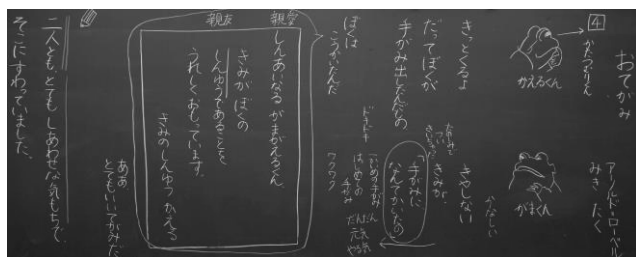 おてがみ
アーノルド・ローベル
みき たく
4
かたつむりくん
かえるくん
がまくん
きっとくるよ
だってぼくが
手がみ出したんだもの
きやしない
きみが
「手がみに
なんてかいたの」
ぼくは
こうかいたんだ
ドキドキ
はじめての
手がみ
ワクワク
だんだん
元気
やる気
親愛
親友
しんあいなる がまがえるくん。
きみが ぼくの
しんゆうであることを
うれしくおもっています。
きみのしんゆう かえる
ああ。
とてもいいてがみだ
二人とも とても しあわせな気もちで
そこにすわっていました。